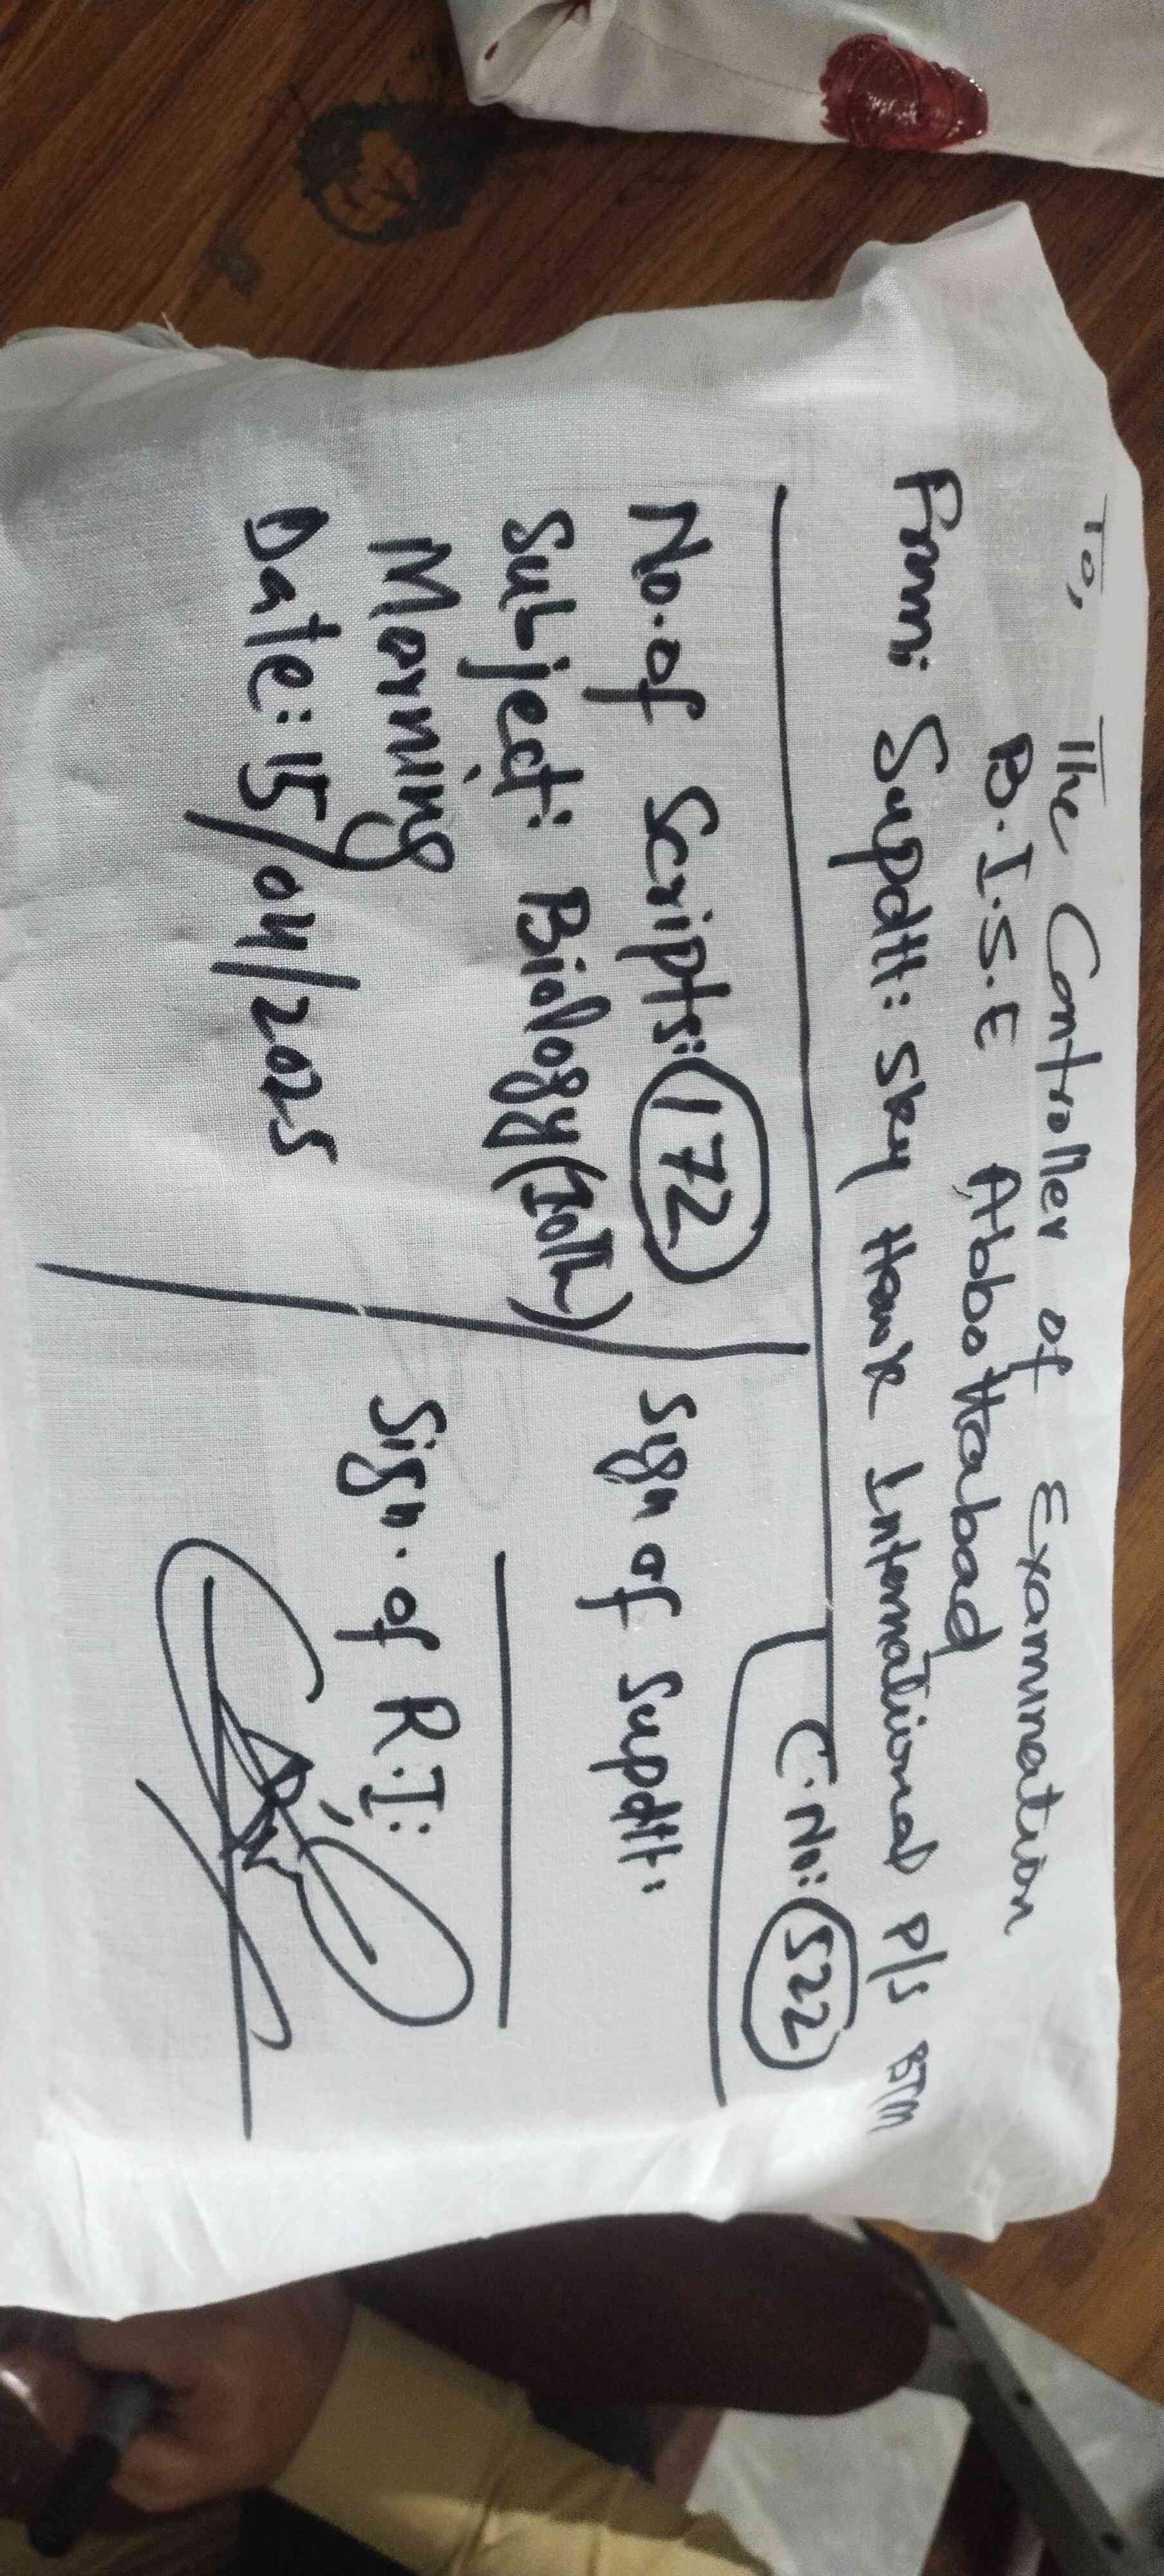 To, The Controller of Examination
B.I.S.E Abbottabad
From: Supdtt: Sky Hawk International P/S BTM
C.No: 522
No. of Scripts: 172
Subject: Biology (10th)
Morning
Date: 15/04/2025
Sign of Supdtt:
Sign. of R.I: